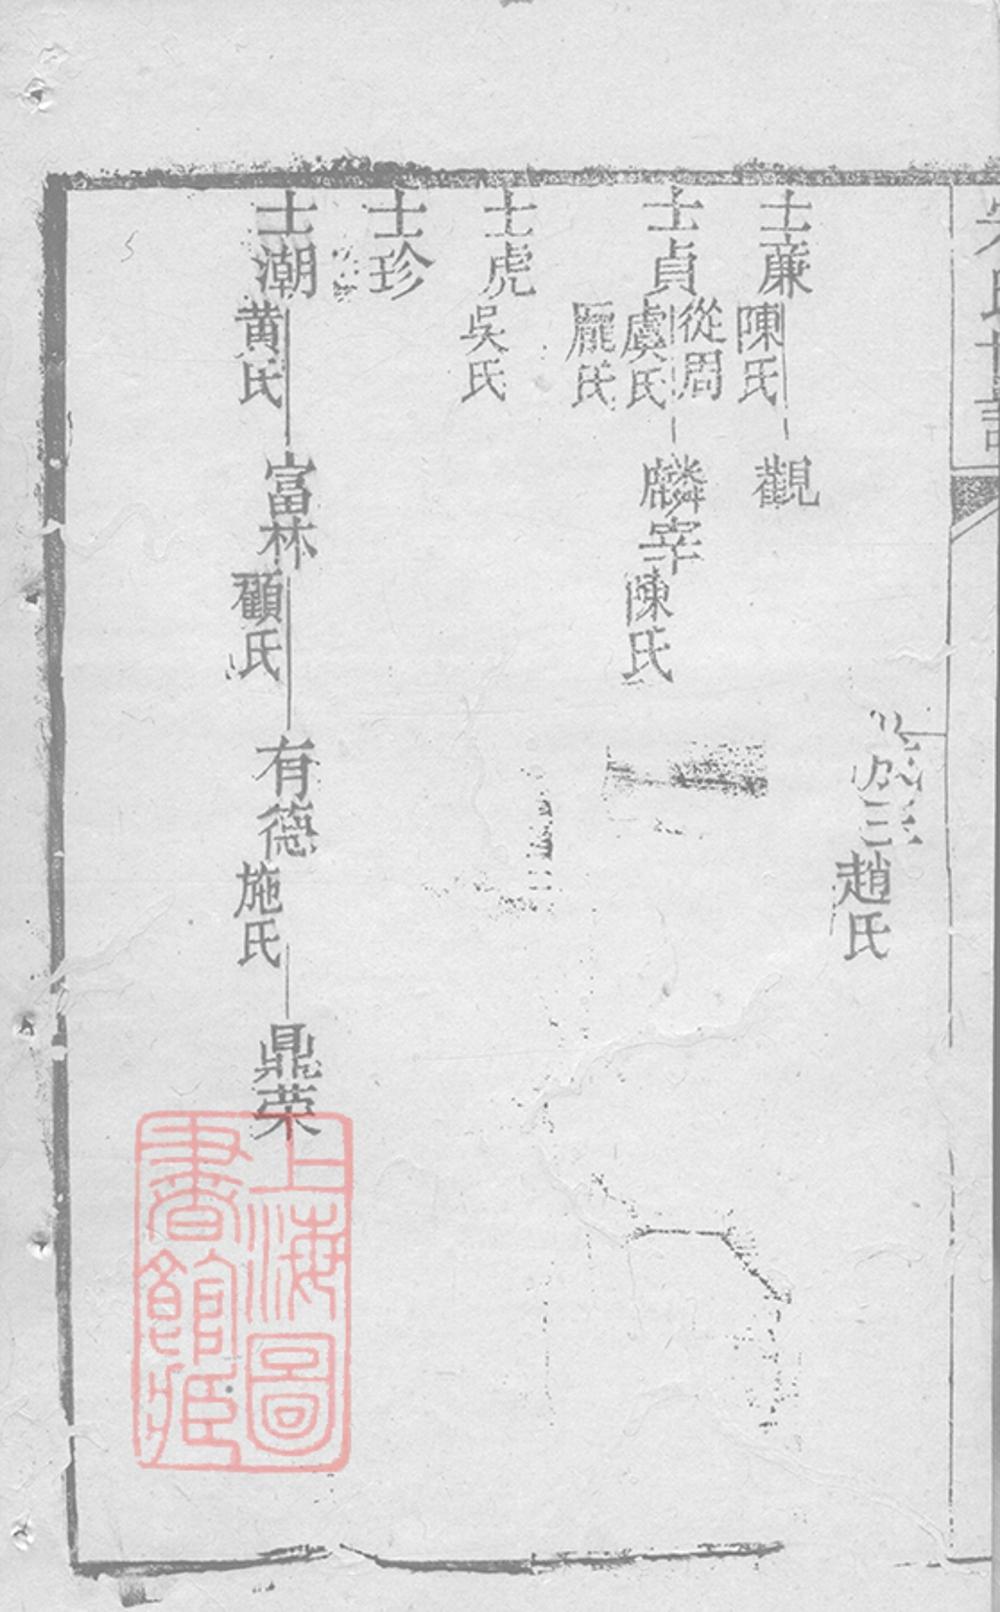 宋氏世譜
三 趙氏
士廉 陳氏 觀
士貞 從周 虞氏 龎氏 麟宰 陳氏
士虎 吳氏
士珍
士潮 黃氏 富林 顧氏 有德 施氏 鼎荣
上海圖書館藏